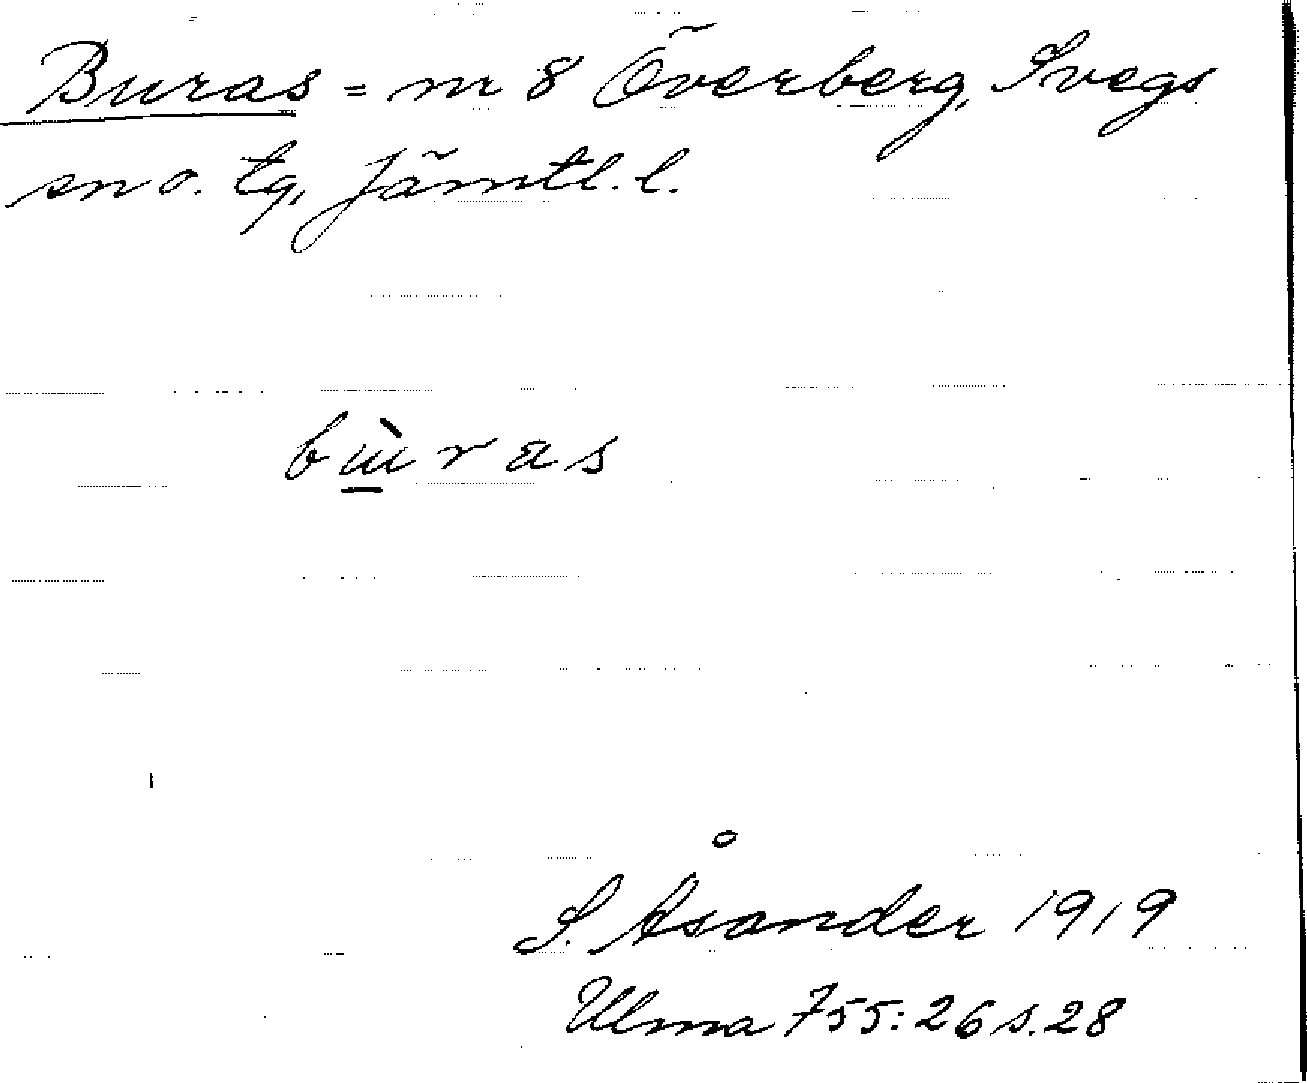 Buras = nr 8 Överberg, Svegs
sn o. tg, Jämtl. l.
bɯ̀ras
S. Åsander 1919
Ulma 755:26 s. 28